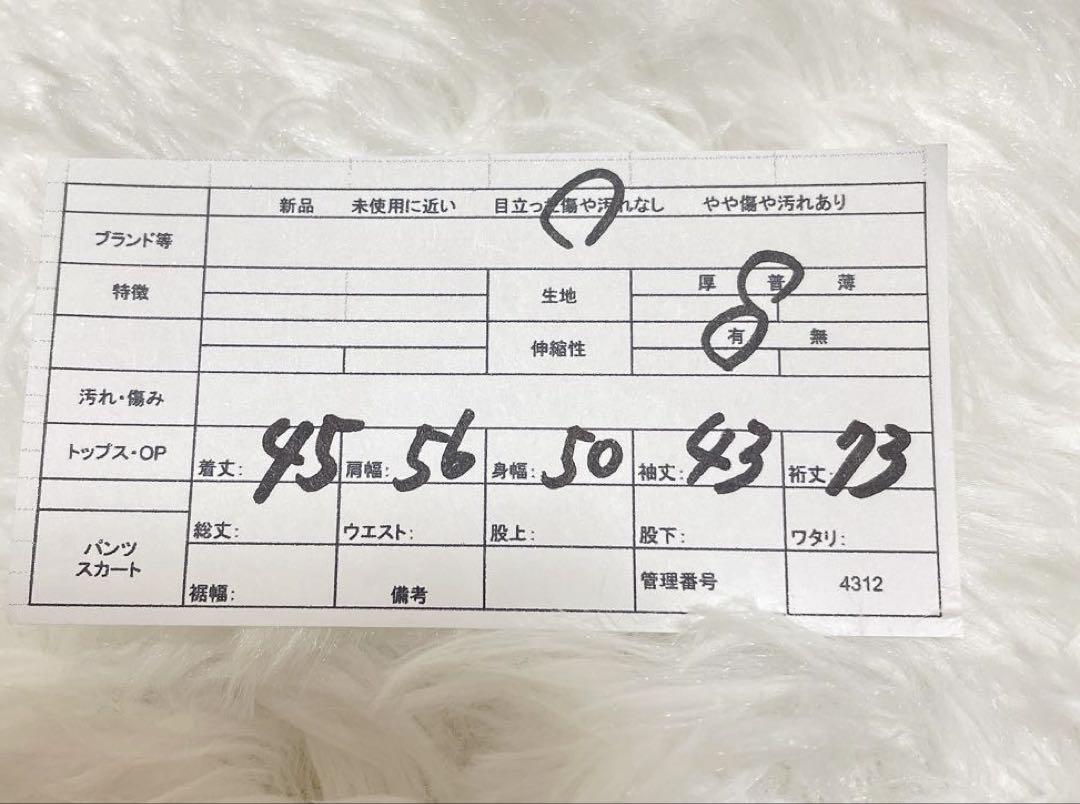 新品 未使用に近い 目立った傷や汚れなし やや傷や汚れあり
ブランド等
特徴 生地 厚 普 薄
伸縮性 有 無
汚れ・傷み
トップス・OP 着丈: 45 肩幅: 56 身幅: 50 袖丈: 43 裄丈: 73
総丈: ウエスト: 股上: 股下: ワタリ:
パンツ
スカート
裾幅: 備考 管理番号 4312